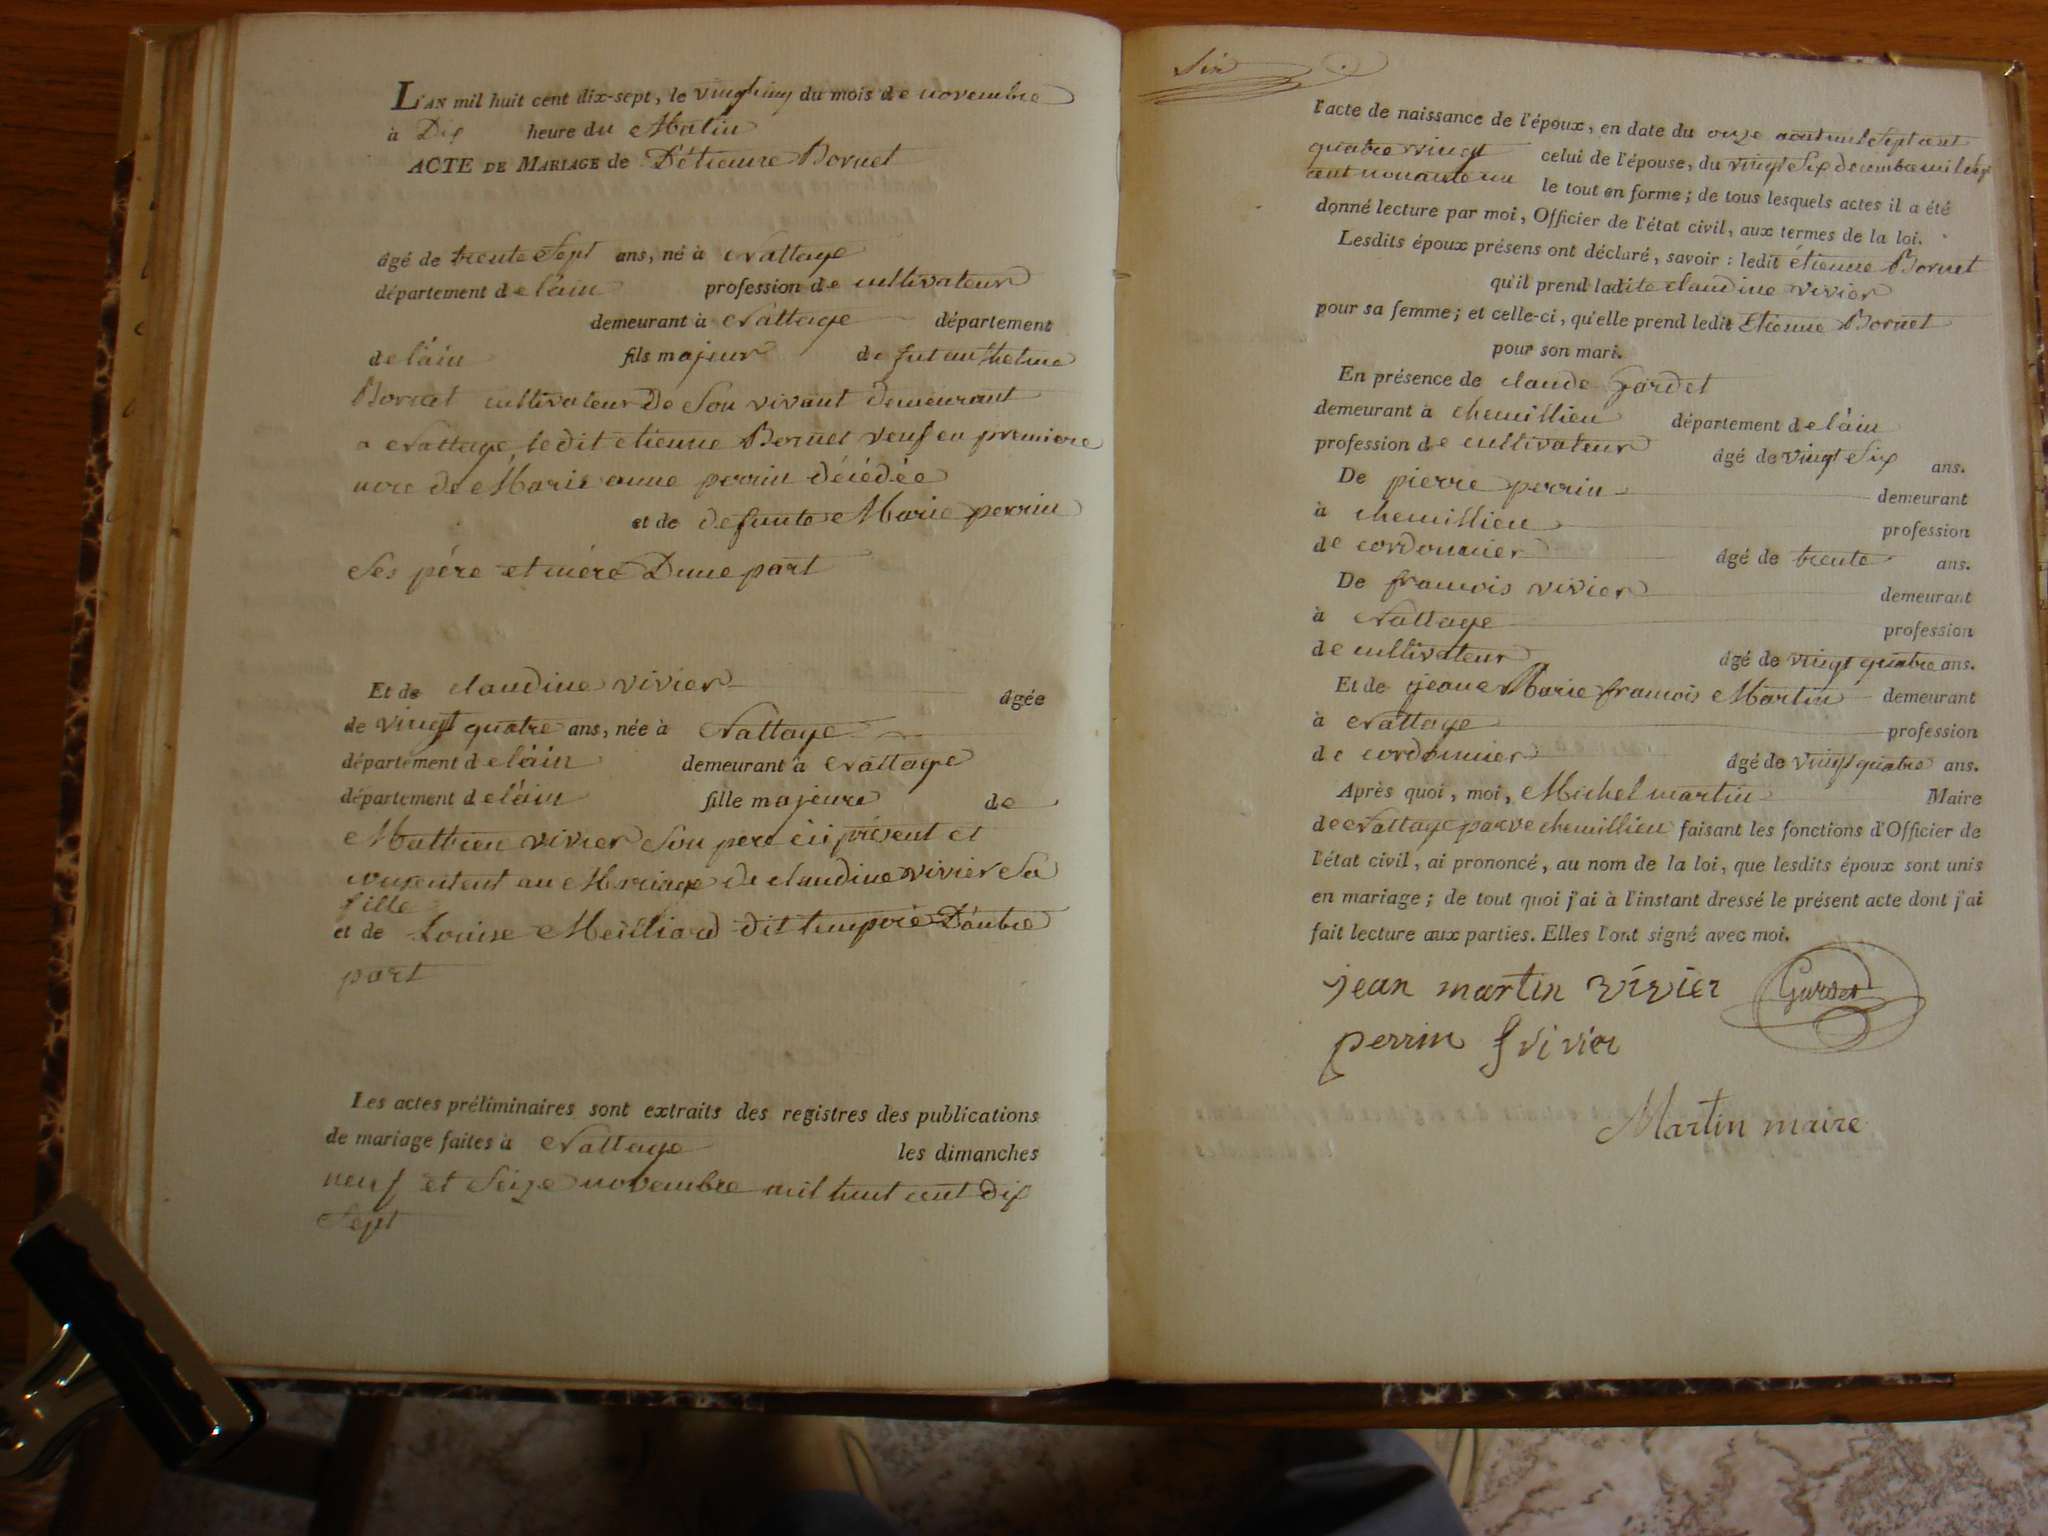 L'AN mil huit cent dix-sept, le vingt cinq du mois de novembre
à Dix heure du Matin
ACTE DE MARIAGE de D'étienne Bornet
âgé de trente Sept ans, né à Nattage
département de l'ain profession de cultivateur
demeurant à Nattage département
de l'ain fils majeur de fut anthelme
Bornet cultivateur De Son vivant demeurant
a Nattage, ledit etienne Bornet veuf en premiere
noce de Marie anne perrin décédée
et de defunte Marie perrin
Ses pére et mére D'une part
Et de claudine vivier âgée
de vingt quatre ans, née à Nattage
département de l'ain demeurant à Nattage
département de l'ain fille majeure de
Mathieu vivier Son pere ici présent et
consentent au Mariage de claudine vivier Sa
fille
et de Louise Meilliard dit D'autre
part
Les actes préliminaires sont extraits des registres des publications
de mariage faites à Nattage les dimanches
neuf et Seize novembre mil huit cent dix
Sept
Six
l'acte de naissance de l'époux, en date du onze aout mil Sept cent
quatre vingt celui de l'épouse, du vingt Six decembre mil Sept
cent nonante un le tout en forme; de tous lesquels actes il a été
donné lecture par moi, Officier de l'état civil, aux termes de la loi.
Lesdits époux présens ont déclaré, savoir : ledit étienne Bornet
qu'il prend ladite claudine vivier
pour sa femme; et celle-ci, qu'elle prend ledit Etienne Bornet
pour son mari.
En présence de claude Gardet
demeurant à chemillieu département de l'ain
profession de cultivateur âgé de vingt Six ans.
De pierre perrin demeurant
à chemillieu profession
de cordonnier âgé de trente ans.
De francois vivier demeurant
à Nattage profession
de cultivateur âgé de vingt quatre ans.
Et de jeane Marie francois Martin demeurant
à Nattage profession
de cordonnier âgé de vingt quatre ans.
Après quoi, moi, Michel martin Maire
de Nattage parve chemillieu faisant les fonctions d'Officier de
l'état civil, ai prononcé, au nom de la loi, que lesdits époux sont unis
en mariage; de tout quoi j'ai à l'instant dressé le présent acte dont j'ai
fait lecture aux parties. Elles l'ont signé avec moi.
jean martin vivier Gardet
perrin f vivier
Martin maire